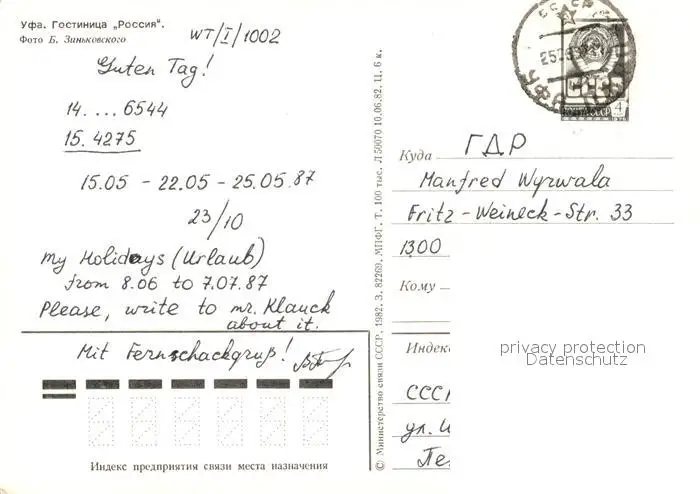 Уфа. Гостиница „Россия“.
Фото Б. Зиньковского
WT/I/1002
Guten Tag!
14. ... 6544
15. 4275
15.05 - 22.05 - 25.05.87
23/10
My Holidays (Urlaub)
from 8.06 to 7.07.87
Please, write to mr. Klauck
about it.
Mit Fernschachgruß!
Индекс предприятия связи места назначения
© Министерство связи СССР, 1982. З. 82269. МПФГ. Т. 100 тыс. Л 59070 10.06.82. Ц. 6 к.
СССР
УФА
4
Куда ГДР
Manfred Wyrwala
Fritz-Weineck-Str. 33
1300
Кому
Индекс
privacy protection
Datenschutz
СССР
ул.